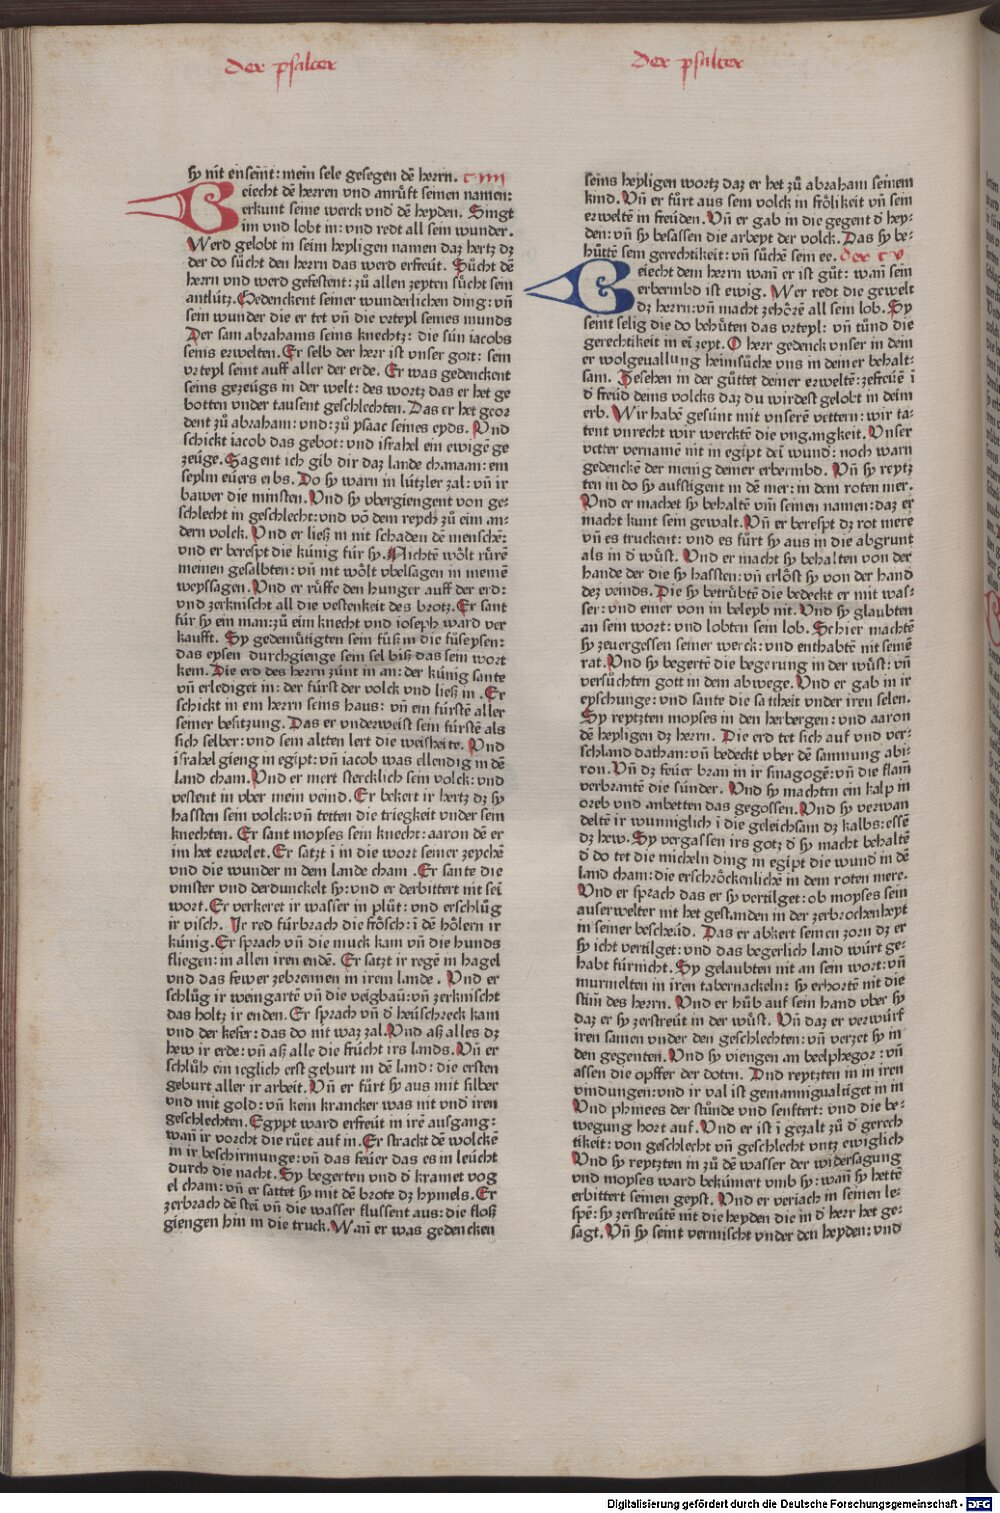 der psalter
der psalter
sy nit enseint: mein sele gesegen dē herrn. c iiii
Beiecht dē herren vnd anrůft seinen namen:
erkunt seine werck vnd dē heyden. Singt
im vnd lobt in: vnd redt all sein wunder.
Werd gelobt in seim heyligen namen daz hertz dz
der do sůcht den herrn das werd erfreüt. Sůcht dē
herrn vnd werd gefestent: zů allen zeyten sůcht sein
antlütz. Gedenckent seiner wunderlichen ding: vñ
sein wunder die er tet vñ die vrteyl seines munds
Der sam abrahams seins knechtz: die sün iacobs
seins erwelten. Er selb der herr ist vnser gott: sein
vrteyl seint auff aller der erde. Er was gedenckent
seins gezeügs in der welt: des wortz das er het ge
botten vnder tausent geschlechten. Das er het geor
dent zů abraham: vnd: zů ysaac seines eyds. Vnd
schickt iacob das gebot: vnd israhel ein ewigē ge
zeüge. Sagent ich gib dir daz lande chanaan: ein
seylin eüers erbs. Do sy warn in lützler zal: vñ ir
bawer die minsten. Vnd sy vbergiengent von ge-
schlecht in geschlecht: vnd vō dem reych zů eim an-
dern volck. Vnd er ließ in nit schaden dē menschē:
vnd er berespt die künig für sy. Nichtē wölt rürē
meinen gesalbten: vñ nit wölt vbelsagen in meinē
weyssagen. Vnd er růffe den hunger auff der erd:
vnd zerknischt all die vestenkeit des brotz. Er sant
für sy ein man: zů eim knecht vnd ioseph ward ver
kaufft. Sy gedemütigten sein füß in die füseysen:
das eysen durchgienge sein sel biß das sein wort
kem. Die erd des herrn zünt in an: der künig sante
vñ erlediget in: der fürst der volck vnd ließ in. Er
schickt in ein herrn seins haus: vñ ein fürstē aller
seiner besitzung. Das er vnderweist sein fürstē als
sich selber: vnd sein altten lert die weisheite. Vnd
israhel gieng in egipt: vñ iacob was ellendig in dē
land cham. Vnd er mert stercklich sein volck: vnd
vestent in vber mein veind. Er bekert ir hertz dz sy
hassten sein volck: vñ tetten die triegkeit vnder sein
knechten. Er sant moyses sein knecht: aaron dē er
im het erwelet. Er satzt i in die wort seiner zeychē
vnd die wunder in dem lande cham. Er sante die
vinster vnd derdunckelt sy: vnd er derbittert nit sei
wort. Er verkeret ir wasser in plüt: vnd erschlüg
ir visch. Ir red fürbrach die frösch: i dē hölern ir
künig. Er sprach vñ die muck kam vñ die hunds
fliegen: in allen iren endē. Er satzt ir regē in hagel
vnd das fewer zebrennen in irem lande. Vnd er
schlüg ir weingartē vñ die veigbaū: vñ zerknischt
das holtz ir enden. Er sprach vñ d heüschreck kam
vnd der kefer: das do nit waz zal. Vnd aß alles dz
hew ir erde: vñ aß alle die frücht irs lands. Vñ er
schlüh ein ieglich erst geburt in dē land: die ersten
geburt aller ir arbeit. Vñ er fürt sy aus mit silber
vnd mit gold: vñ kein krancker was nit vnd iren
geschlechten. Egypt ward erfreüt in irē ausgang:
wañ ir vorcht die rüet auf in. Er strackt dē wolckē
in ir beschirmunge: vñ das feüer das es in leücht
durch die nacht. Sy begerten vnd d kramet vog
el cham: vñ er sattet sy mit dē brote dz hymels. Er
zerbrach dē stei vñ die wasser flussent aus: die floß
giengen hin in die truck. Wañ er was gedencken
seins heyligen wortz daz er het zů abraham seinem
kind. Vñ er fürt aus sem volck in frölikeit vñ sein
erweltē in freüden. Vñ er gab in die gegent d hey-
den: vñ sy besassen die arbeyt der volck. Das sy be-
hüttē sein gerechtikeit: vñ süchē sein ee. der c v
Beiecht dem herrn wañ er ist gůt: wañ sein
erbermbd ist ewig. Wer redt die gewelt
dz herrn: vñ macht zehörē all sein lob. Sy
seint selig die do behüten das vrteyl: vñ tünd die
gerechtigkeit in ei zeyt. O herr gedenck vnser in dem
er wolgeuallung heimsüche vns in deiner behalt-
sam. Zesehen in der güttet deiner erweltē: zefreüē i
d freüd deins volcks daz du wirdest gelobt in deim
erb. Wir habē gesünt mit vnserē vettern: wir ta-
tent vnrecht wir wercktē die vngangkeit. Vnser
vetter vernamē nit in egipt dei wund: noch warn
gedenckē der menig deiner erbermbd. Vñ sy reytz
ten in do sy aufstigent in dē mer: in dem roten mer.
Vnd er machet sy behaltē vm seinen namen: daz er
macht kunt sein gewalt. Vñ er berespt dz rot mere
vñ es truckent: vnd es fürt sy aus in die abgrunt
als in d wüst. Vnd er macht sy behalten von der
hande der die sy hassten: vñ erlöst sy von der hand
dez veinds. Die sy betrübtē die bedeckt er mit was-
ser: vnd einer von in beleyb nit. Vnd sy glaubten
an sein wort: vnd lobten sein lob. Schier machtē
sy zeuergessen seiner werck: vnd enthabtē nit seinē
rat. Vnd sy begertē die begerung in der wüst: vñ
versüchten gott in dem abwege. Vnd er gab in ir
eyschunge: vnd sante die sattheit vnder iren selen.
Sy reytzten moyses in den herbergen: vnd aaron
dē heyligen dz herrn. Die erd tet sich auf vnd ver-
schland dathan: vñ bedeckt vber dē samnung abi-
ron. Vñ dz feüer bran in ir sinagogē: vñ die flam
verbrantē die sünder. Vnd sy machten ein kalp in
oreb vnd anbetten das gegossen. Vnd sy verwan
deltē ir wunniglich i die geleichsam dz kalbs: essē
dz hew. Sy vergassen irs gotz d sy macht behaltē
d do tet die micheln ding in egipt die wund in dē
land cham: die erschröckenlichē in dem roten mere.
Vnd er sprach das er sy vertilget: ob moyses sein
auserwelter nit het gestanden in der zerbrochenheyt
in seiner bescheüd. Das er abkert seinen zorn dz er
sy icht vertilget: vnd das begerlich land würt ge-
habt fürnicht. Sy gelaubten nit an sein wort: vñ
murmelten in iren tabernackeln: sy erhortē nit die
stim des herrn. Vnd er hüb auf sein hand vber sy
daz er sy zerstreüt in der wüst. Vñ daz er verwürf
iren samen vnder den geschlechten: vñ verzet sy in
den gegenten. Vnd sy viengen an beelphegor: vñ
assen die opffer der doten. Vnd reytzten in in iren
vindungen: vnd ir val ist gemannigualtiget in in
Vnd phinees der stünde vnd senftert: vnd die be-
wegung hort auf. Vnd er ist i gezalt zů d gerech
tikeit: von geschlecht vñ geschlecht vntz ewiglich
Vnd sy reytzten in zů dē wasser der widersagung
vnd moyses ward bekümert vmb sy: wañ sy hettē
erbittert seinen geyst. Vnd er veriach in seinen le-
spē: sy zerstreütē nit die heyden die in d herr het ge-
sagt. Vñ sy seint vermischt vnder den heyden: vnd
Digitalisierung gefördert durch die Deutsche Forschungsgemeinschaft - DFG